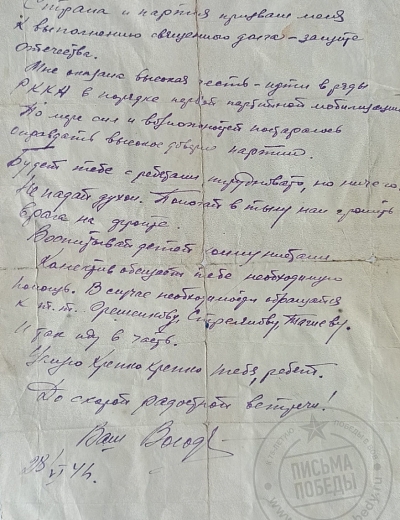 Страна и партия призвали меня
к выполнению священного долга – защите
отечества.
Мне оказана высокая честь – идти в ряды
РККА в порядке первой партийной мобилизации.
По мере сил и возможностей постараюсь
оправдать высокое доверие партии.
Будет тебе с ребятами трудновато, но ничего.
Не падай духом. Помогай в тылу нам громить
врага на фронте.
Воспитывай детей коммунистами.
Коллектив обещает тебе необходимую
помощь. В случае необходимости обращайся
к т.т. Грешенкову,
Итак иду в часть.
Целую крепко крепко тебя, ребят.
До скорой радостной встречи!
Ваш Володя
28/VI 41.
ПИСЬМА
ПОБЕДЫ